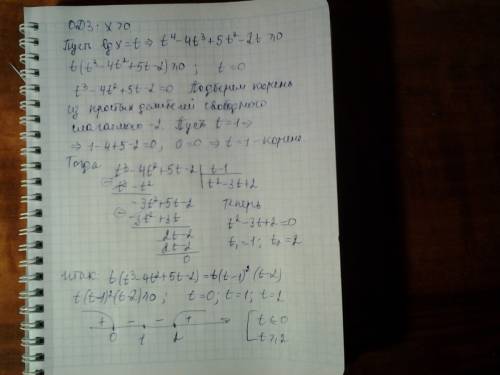 ОДЗ: x>0
Пусть lg x = t ⇒ t⁴-4t³+5t²-2t ≥0
t(t³-4t²+5t-2) ≥0 ; t=0
t³-4t²+5t-2=0 Подберем корень
из простых делителей свободного
слагаемого -2. Пусть t=1 ⇒
⇒ 1-4+5-2=0, 0=0 ⇒ t=1 - корень.
Тогда
t³-4t²+5t-2 | t-1
t³-t² | t²-3t+2
-3t²+5t-2 Теперь
-3t²+3t t²-3t+2=0
2t-2 t₁=1; t₂=2
2t-2
0
Итак t(t³-4t²+5t-2)=t(t-1)²(t-2)
t(t-1)²(t-2) ≥0 ; t=0; t=1; t=2
+ - - + [ t ≤ 0
0 1 2 t ≥ 2